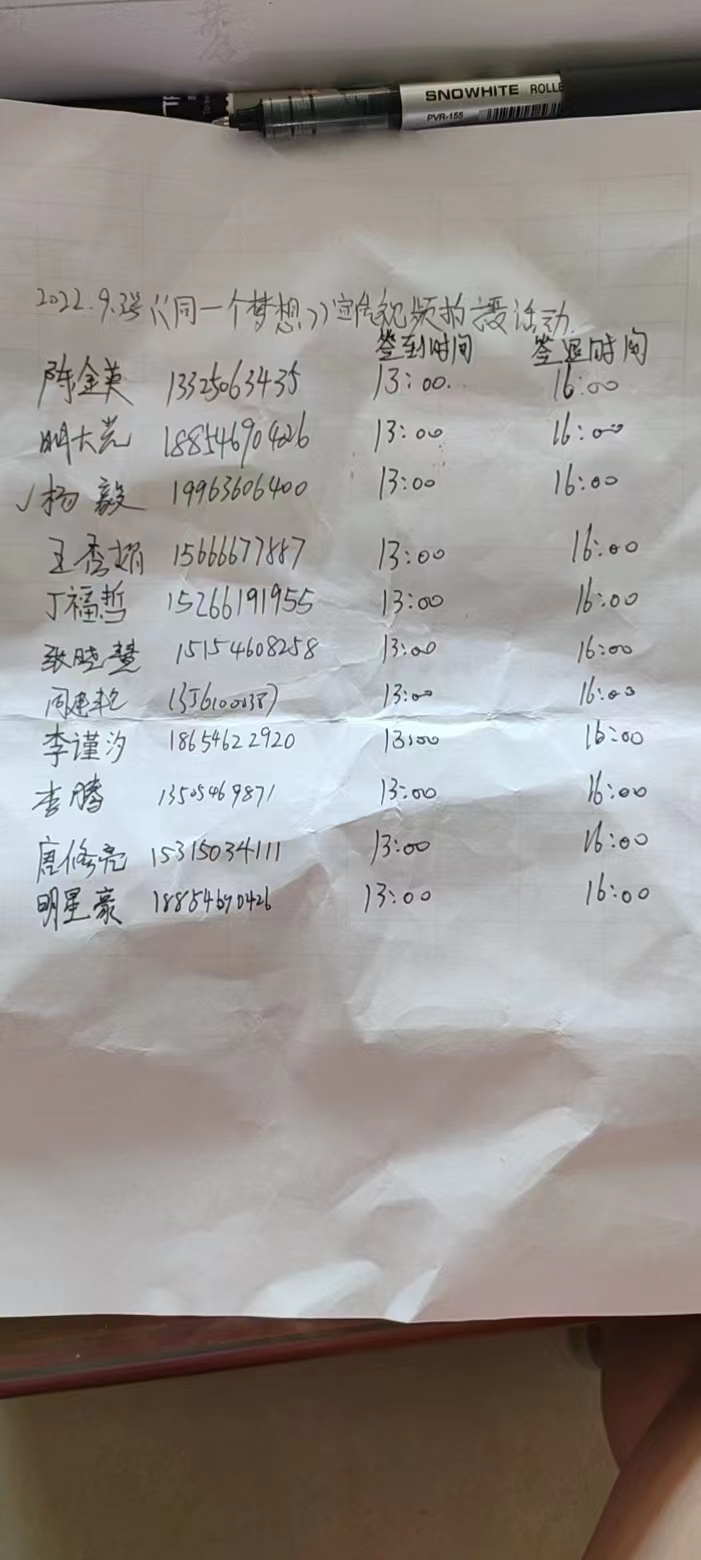 SNOWHITE ROLLE
PVR-155
2022.9.3号《同一个梦想》宣传视频拍摄活动
签到时间 签退时间
陈金英 13325063435 13:00 16:00
明大光 18854690426 13:00 16:00
√杨毅 19963606400 13:00 16:00
王秀娟 15666677887 13:00 16:00
丁福哲 15266191955 13:00 16:00
张晓慧 15154608258 13:00 16:00
13:00 16:00
李谨汐 18654622920 13:00 16:00
李腾 13505469871 13:00 16:00
唐修亮 15315034111 13:00 16:00
明星豪 18854690426 13:00 16:00